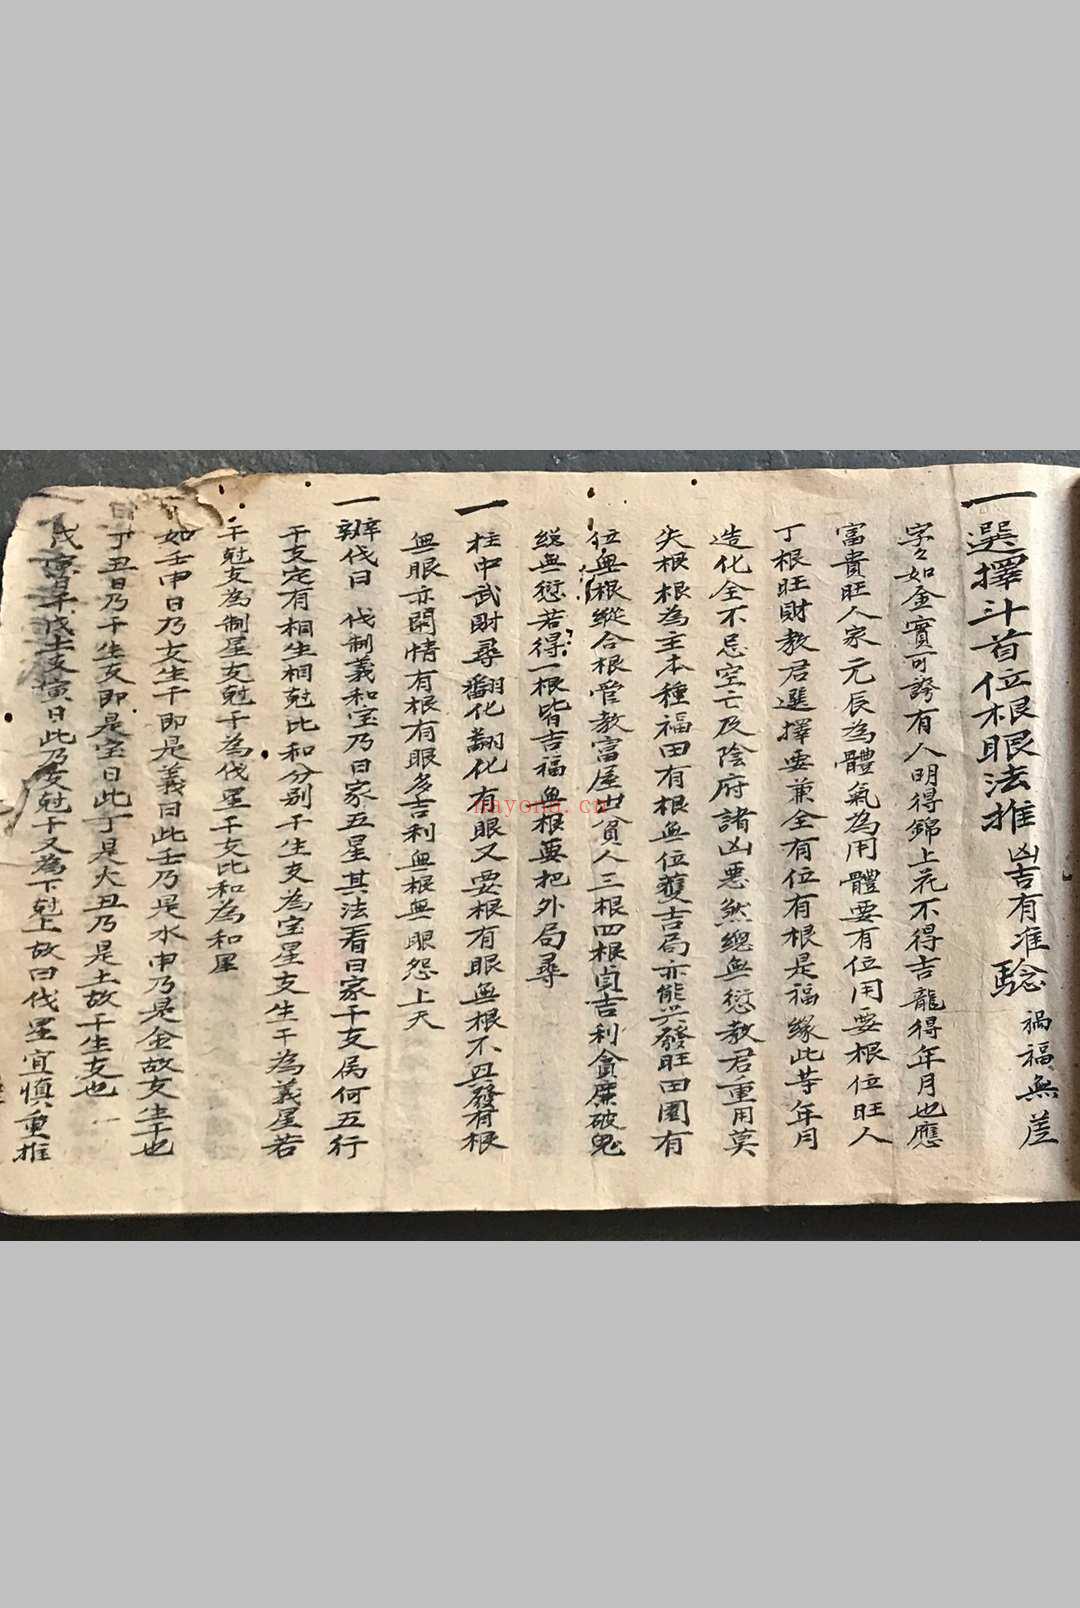 一選擇斗首位根眼法推凶吉有准驗 禍福無差
字々如金實可誇有人明得錦上花不得吉龍得年月也應
富貴旺人家元辰為體氣為用體要有位用要根位旺人
丁根旺財教君選擇要兼全有位有根是福緣此等年月
造化全不忌空亡及陰府諸凶惡煞總無愆教君重用莫
失根根為主本種福田有根無位獲吉局亦能兴發旺田園有
位無根縱合根管教富屋出貧人三根四根貞吉利貪廉破鬼
総無愆若得一根皆吉福無根要把外局尋
一
柱中武財尋翻化翻化有眼又要根有眼無根不丑發有根
無眼亦閑情有根有眼多吉利無根無眼怨上天
一辨伐日 伐制義和宝乃日家五星其法看日家干支属何五行
干支定有相生相尅比和分别干生支為宝星支生干為義星若
干尅支為制星支尅干為伐星干支比和為和星
如壬申日乃支生干即是義日此壬乃是水申乃是金故支生干也
丁丑日乃干生支即是宝日此丁是火丑乃是土故干生支也
戊寅日干戊土支寅日此乃支尅干又為下尅上故曰伐星宜慎重推
nayona.cn